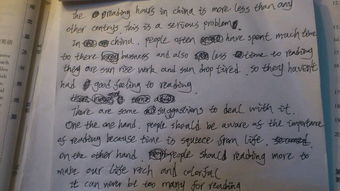 The reading hours in china is more less than any
other contrys. This is a serious problem.
In china. people often have spent much time
to there business and also less time to reading
they are sun rise work and sun drop tired. so they haven't
had good feeling to reading.
There are some suggestions to deal with it.
One the one hand. people should be aware as the importance
as reading because time is squeeze from life.
on the other hand. people should reading more to
make our life rich and colorful
It can never be too many for reading